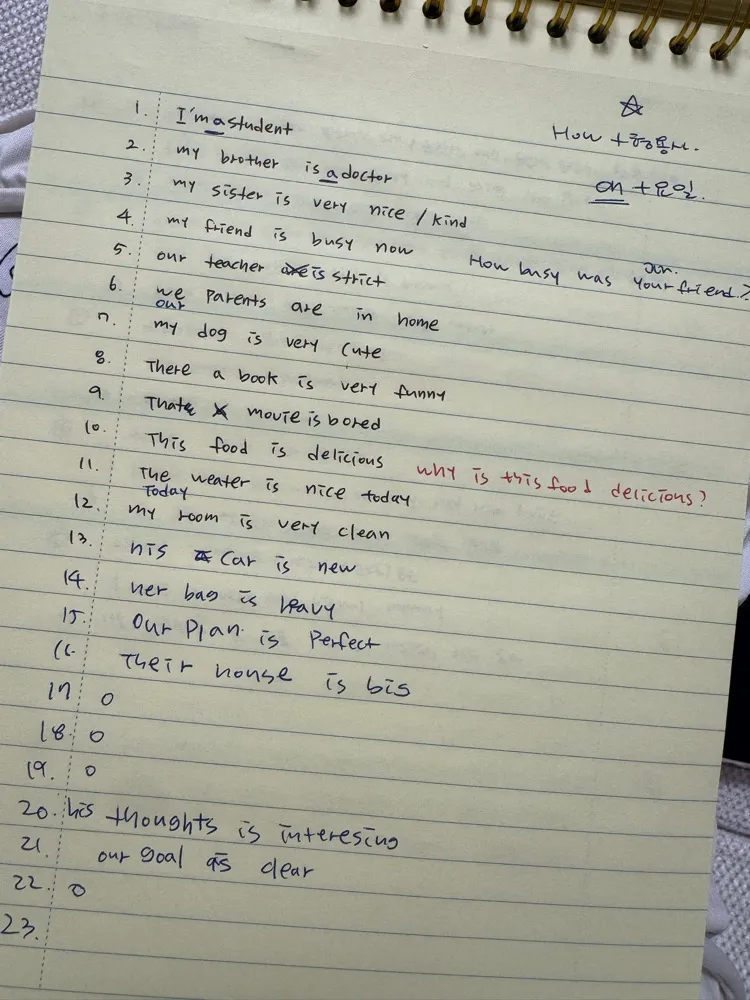 ☆
How + 형용사.
on + 요일.
1. I'm a student
2. my brother is a doctor
3. my sister is very nice / kind
4. my friend is busy now
How busy was your friend?
5. our teacher is strict
6. we parents are in home
our
7. my dog is very cute
8. There a book is very funny
9. That movie is bored
10. This food is delicious why is this food delicious?
11. The weater is nice today
Today
12. my room is very clean
13. his car is new
14. her bag is heavy
15. our plan is perfect
16. Their house is big
17 0
18. 0
19. 0
20. his thoughts is interesing
21. our goal is clear
22. 0
23.